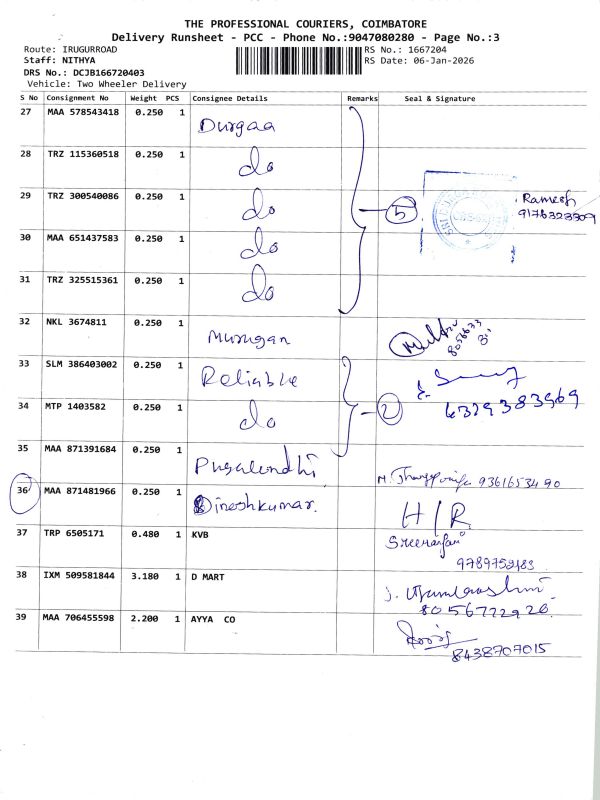 THE PROFESSIONAL COURIERS, COIMBATORE
Delivery Runsheet - PCC - Phone No.:9047080280 - Page No.:3
Route: IRUGURROAD RS No.: 1667204
Staff: NITHYA RS Date: 06-Jan-2026
DRS No.: DCJB166720403
Vehicle: Two Wheeler Delivery
S No Consignment No Weight PCS Consignee Details Remarks Seal & Signature
27 MAA 578543418 0.250 1 Durgaa
28 TRZ 115360518 0.250 1 do
29 TRZ 300540086 0.250 1 do 5 Ramesh
9176323309
30 MAA 651437583 0.250 1 do
31 TRZ 325515361 0.250 1 do
32 NKL 3674811 0.250 1 Murugan
33 SLM 386403002 0.250 1 Reliable
34 MTP 1403582 0.250 1 do 2 6379383969
35 MAA 871391684 0.250 1 Pugalendhi 9361653490
36 MAA 871481966 0.250 1 Dineshkumar H/R
37 TRP 6505171 0.480 1 KVB
9789753183
38 IXM 509581844 3.180 1 D MART
8056722926
39 MAA 706455598 2.200 1 AYYA CO
8438707015